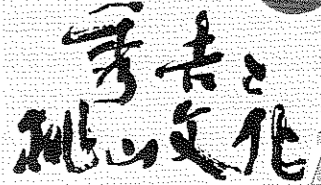 秀吉と
桃山文化